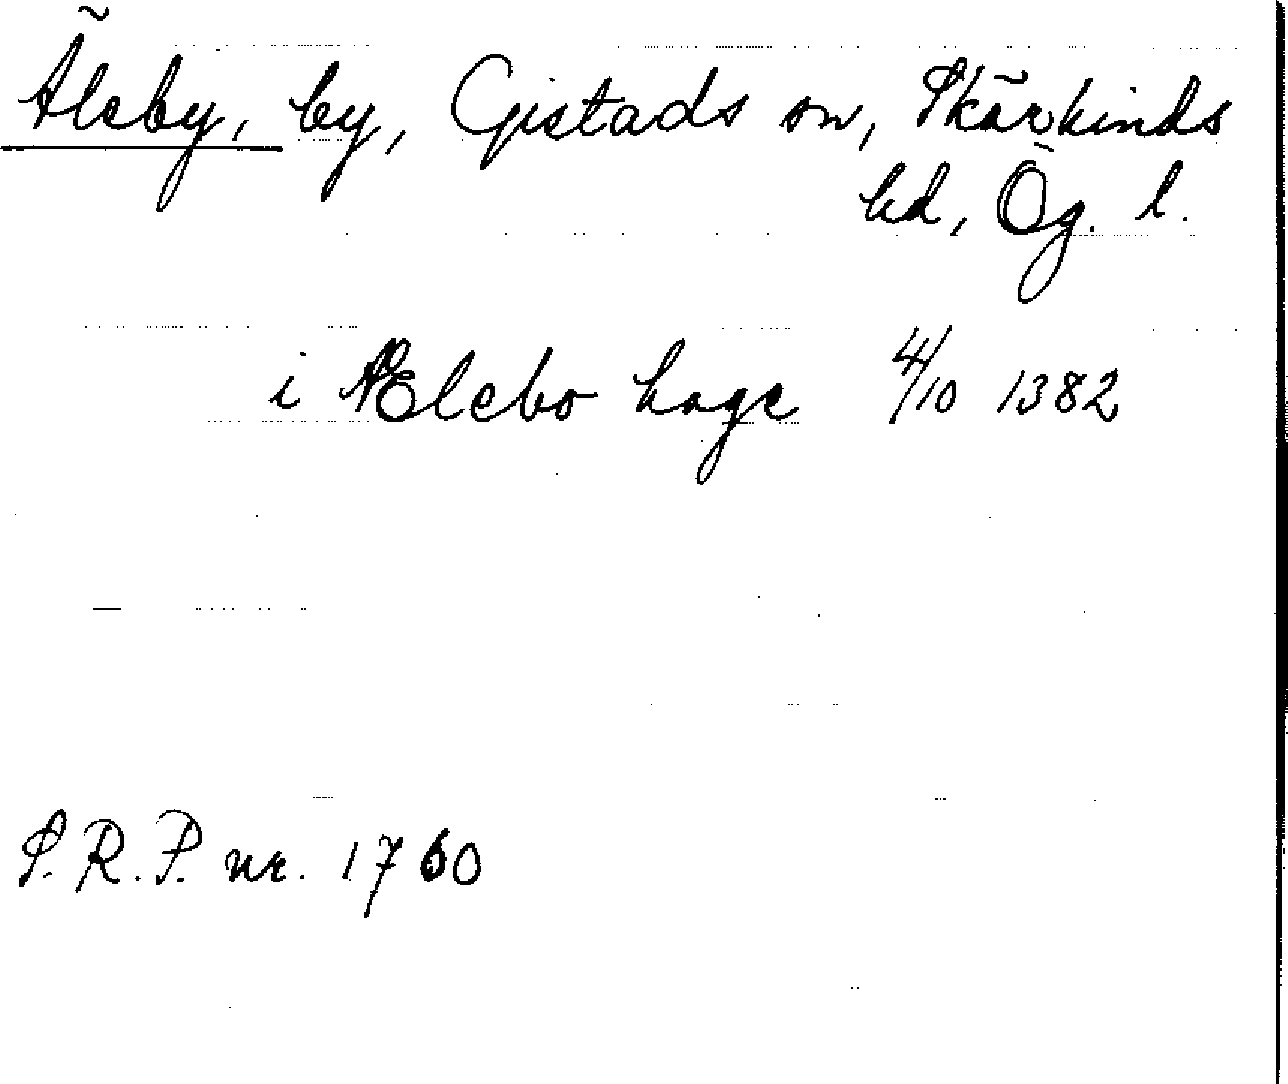 Äleby, by, Gistads sn, Skärkinds
hd, Ög. l.
i Ælebo hage 4/10 1382
S.R.P. nr. 1760